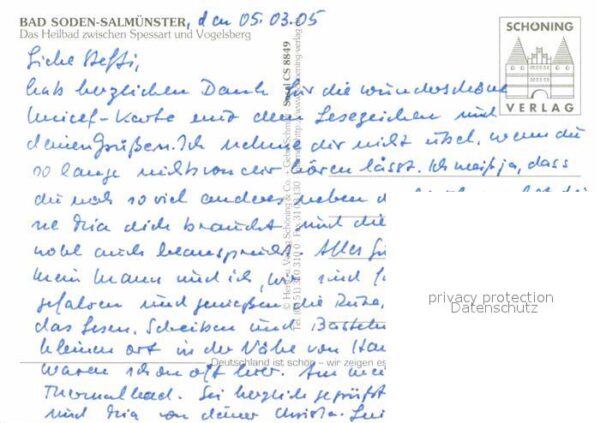 BAD SODEN-SALMÜNSTER, den 05.03.05
Das Heilbad zwischen Spessart und Vogelsberg
SCHÖNING
VERLAG
Liebe Steffi,
hab herzlichen Dank für die wunderschöne
Unicef-Karte mit dem Lesezeichen und
deinen Grüßen. Ich nehme dir nicht übel, wenn du
so lange nichts von dir hören lässt. Ich weiß ja, dass
du noch so viel anderes neben d
dich braucht und die
wohl auch beansprucht. Alles
mein Mann und ich, wir sind
gefahren und genießen die Ruhe,
das Lesen, Schreiben und Basteln
kleinen Ort in der Nähe von
waren schon oft hier. Am
Thermalbad. Sei herzlich gegrüßt
und von deiner Christa.
Deutschland ist schön - wir zeigen es
privacy protection
Datenschutz